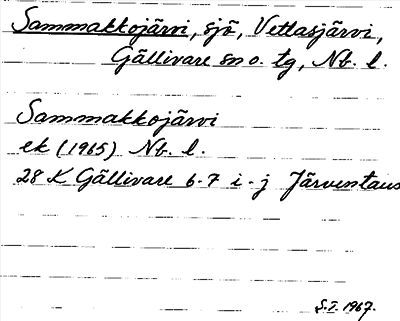 Sammakkojärvi, sjö, Vettasjärvi,
Gällivare sn o. tg, Nb. l.
Sammakkojärvi
ek (1965) Nb. l.
28 K Gällivare 6-7 i-j Järventaus
S.I. 1967.